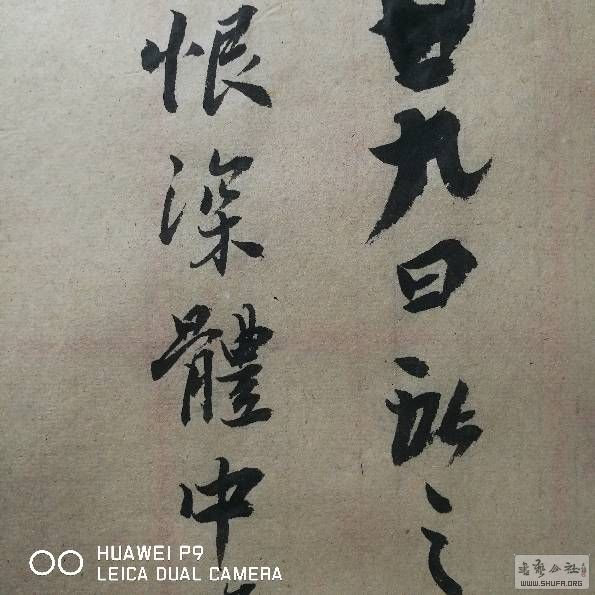 廿九日獻之
恨深體中
HUAWEI P9
LEICA DUAL CAMERA
WWW.SHUFA.ORG